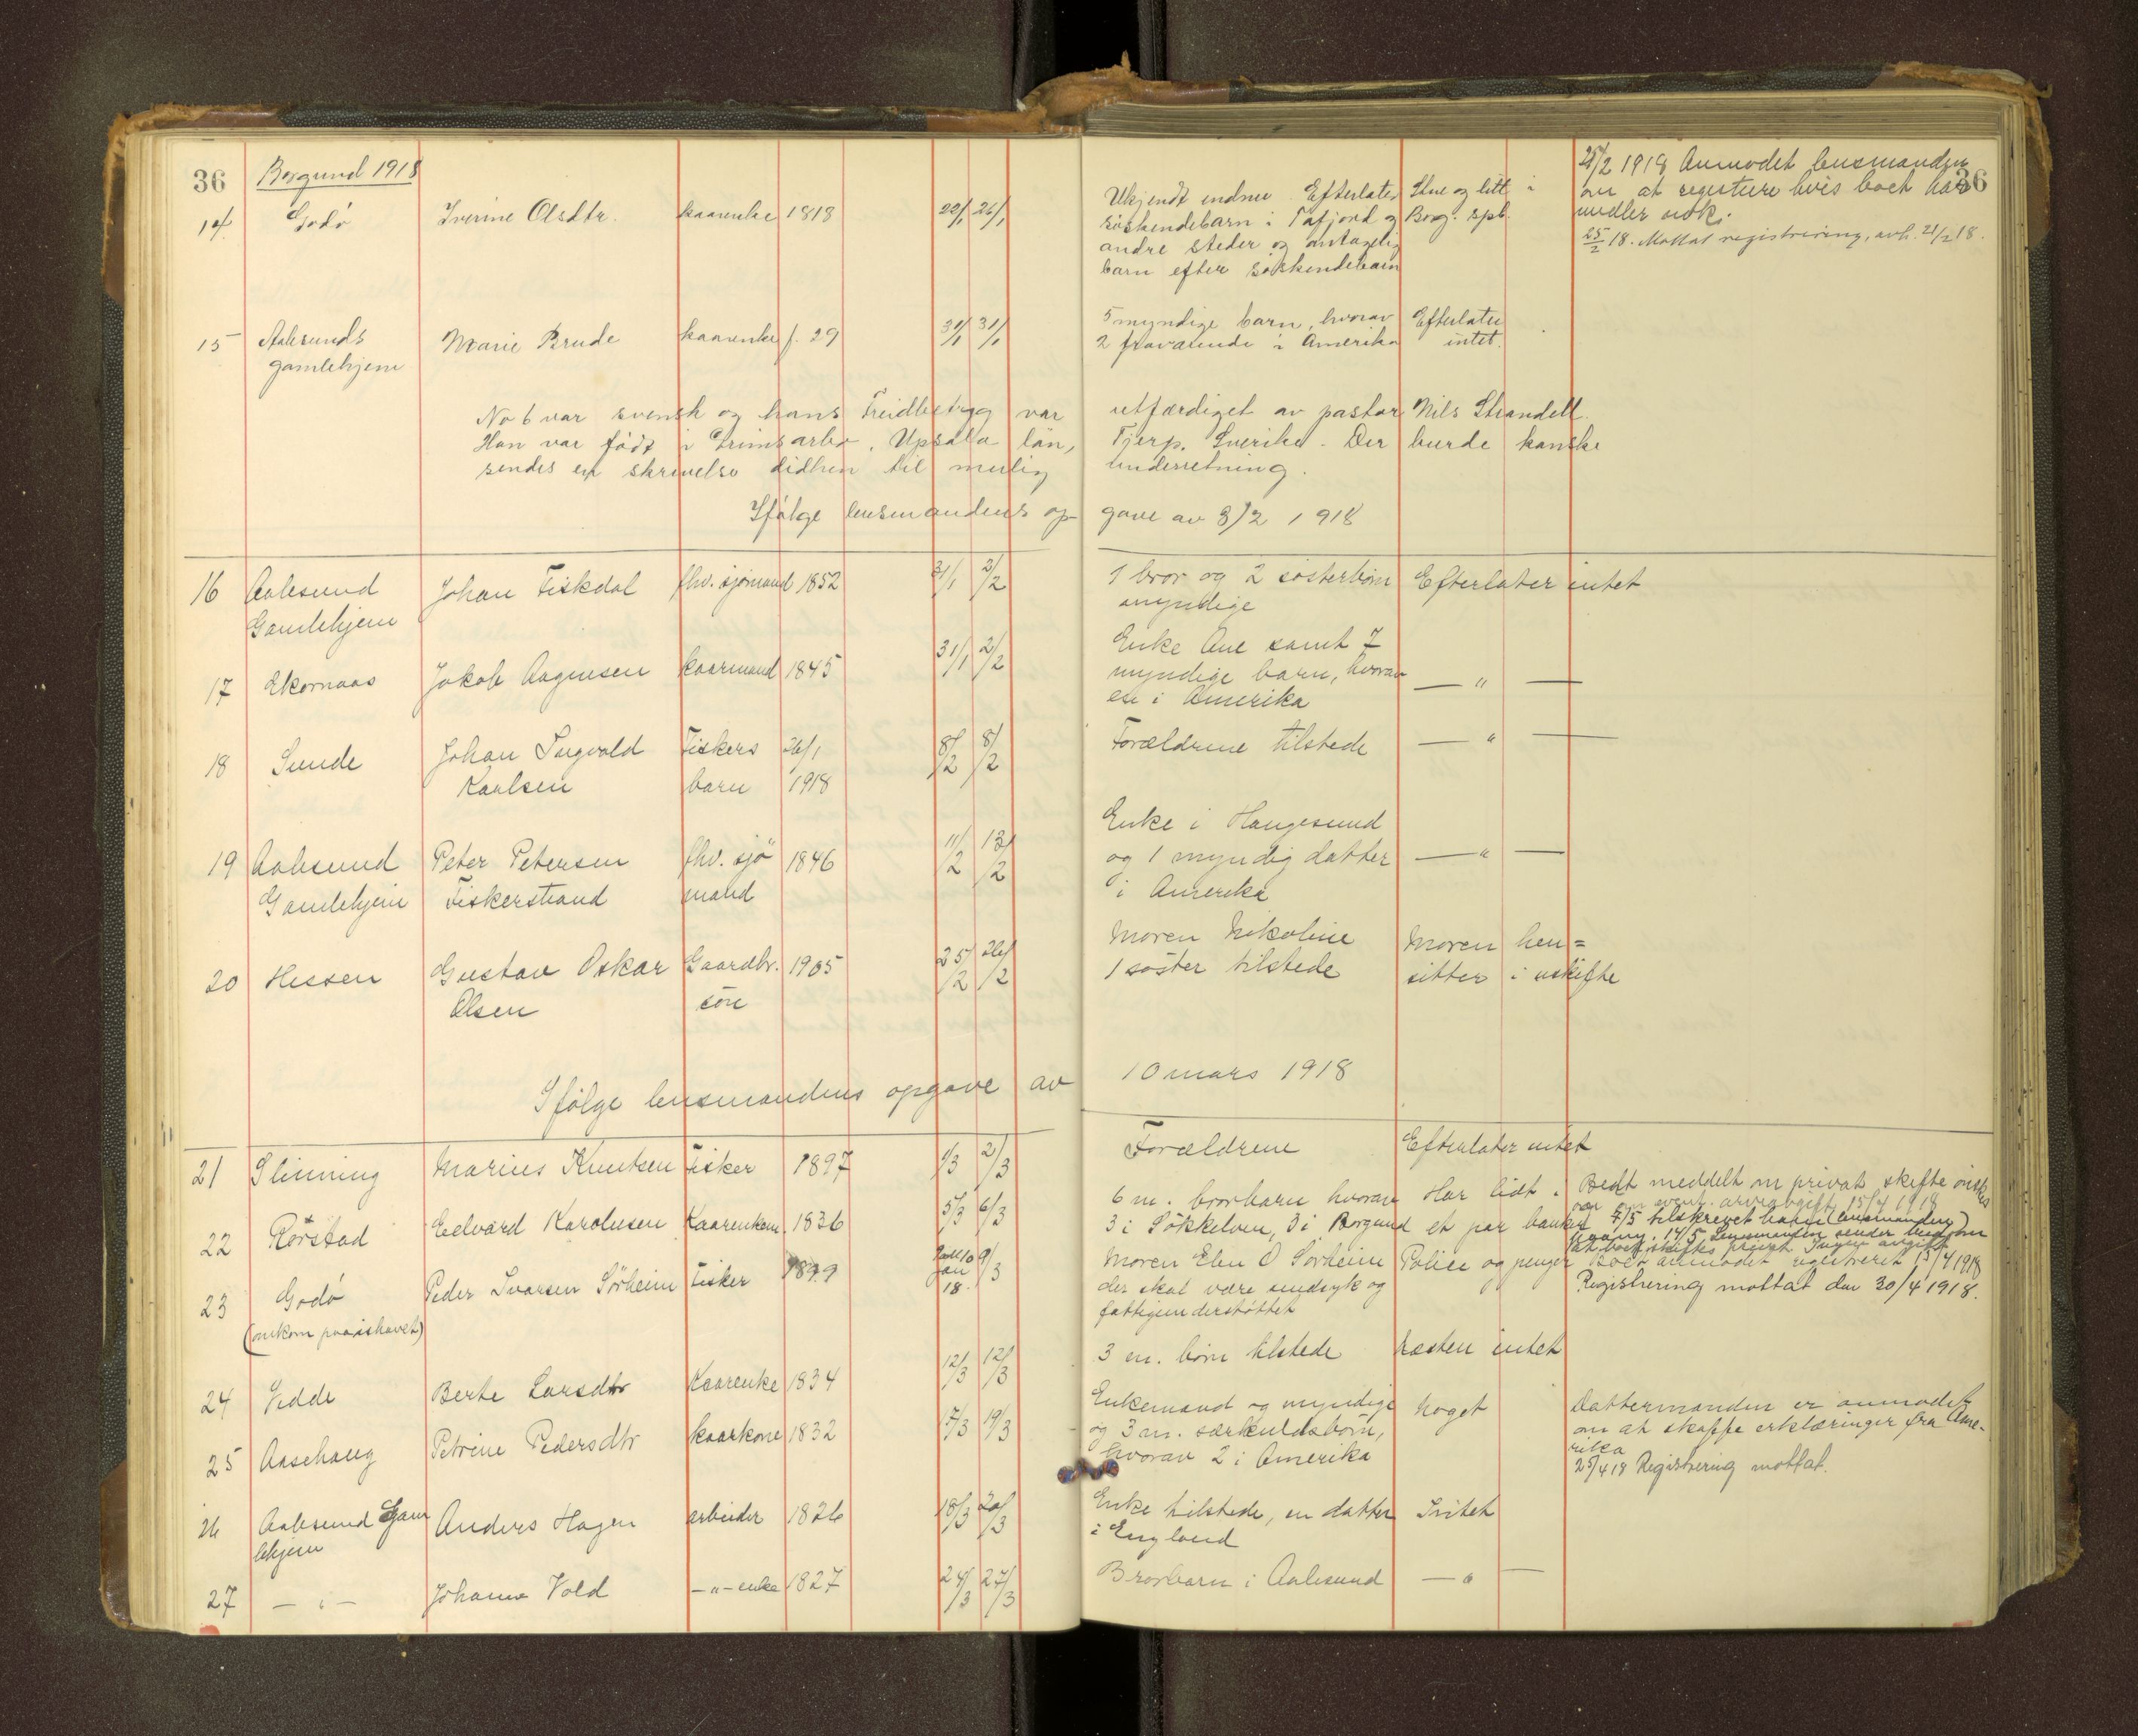 36 Borgund 1918
14 Godö Iverine Olsdtr. kaarenke 1818 22/1 26/1 Ukjendt endnu. Efterlater Stue og litt i 25/2 1918 Anmodet lensmanden 36
söskendebarn i Tafjord og Borg. spb. om at registrere hvis boet har
andre steder og antagelig midler nok.
barn efter söskendebarn 25/2 18. Mottat registrering, avh. 21/2 18.
15 Aalesunds Marie Brude kaarenke f. 29 31/1 31/1 5 myndige barn, hvorav Efterlater
gamlehjem 2 fraværende i Amerika intet.
No 6 var svensk og hans Freidbetyg var utfærdiget av pastor Nils Strandell.
Han var født i arbo, Upsala län, Tjerp, Sverike. Der burde kanske
sendes en skrivelse didhen til mulig underretning.
Ifölge lensmandens opgave av 8/2 1918
16 Aalesund Johan Fiskdal fhv. sjømand 1852 31/1 2/2 1 bror og 2 søsterbørn Efterlater intet
Gamlehjem myndige
17 Ekornaas Jakob Aagesen kaarmand 1845 31/1 2/2 Enke Ane samt 7
myndige barn, hvorav — " —
en i Amerika
18 Sunde Johan Ingvald Fiskers 26/1 8/2 8/2 Forældrene tilstede — " —
Karlsen barn 1918
19 Aalesund Peter Petersen fhv. sjö 1846 11/2 13/2 Enke i Haugesund
Gamlehjem Fiskerstrand mand og 1 myndig datter — " —
i Amerika
20 Hessen Gustav Oskar Gaardbr. 1905 25/2 26/2 Moren Nikoline Moren hen=
Olsen sön 1 søster tilstede sitter i uskifte
Ifölge lensmandens opgave av 10 mars 1918
21 Slinning Marius Knutsen Fisker 1897 1/3 2/3 Forældrene Efterlater intet
22 Rörstad Edvard Karolusen Kaarenkem. 1836 5/3 6/3 6 m. brorbarn hvorav Har lidt i Bedt meddelt om privat skifte önskes
3 i Sökkelven, 3 i Borgund et par banker og om event. arveavgift 15/4 1918
7/5 tilskrevet ham (lensmanden)
14/5 Lensmanden sender
at boet skiftes privat. Ingen avgift
23 Godö Peder Ivarsen Sörheim Fisker 1899 jan 18. 9/3 Moren Elen O Sörheim Police og penger Boet anmodet registreret 15/4 1918
(omkom paa ishavet) der skal være sindsyk og Registrering mottat den 30/4 1918.
fattigunderstöttet
24 Vedde Berte Larsdtr Kaarenke 1834 12/3 12/3 3 m. börn tilstede Næsten intet
25 Aasehaug Petrine Pedersdtr kaarkone 1832 17/3 19/3 Enkemand og myndige noget Dattermanden er anmodet
og 3 m. særkuldsbörn, om at skaffe erklæringer fra Ame-
hvorav 2 i Amerika rika
25/4 18 Registrering mottat.
26 Aalesund Gam Anders Hagen arbeider 1826 18/3 20/3 Enke tilstede, en datter Intet
lehjem i England
27 — " — Johanne Vold — " — enke 1827 24/3 27/3 Brorbarn i Aalesund — " —